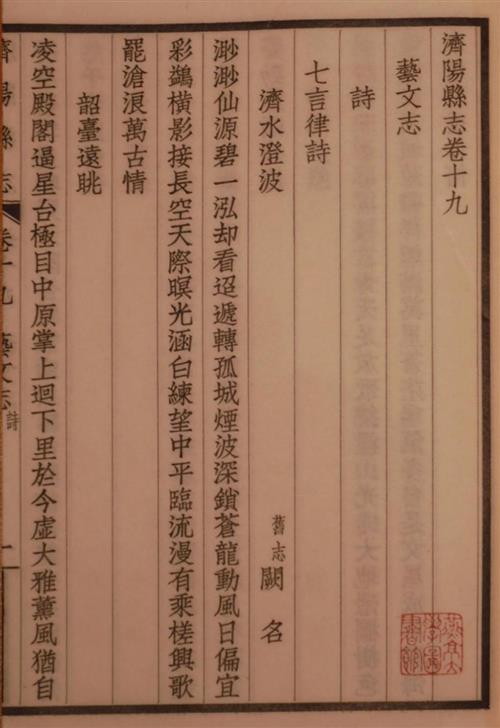 濟陽縣志卷十九
藝文志
詩
七言律詩
濟水澄波 舊志闕名
渺渺仙源碧一泓却看迢遞轉孤城煙波深鎖蒼龍動風日偏宜
彩鷁橫影接長空天際暝光涵白練望中平臨流漫有乘槎興歌
罷滄浪萬古情
韶臺遠眺
凌空殿閣逼星台極目中原掌上迴下里於今虛大雅薰風猶自
濟陽縣志 卷十九 藝文志 詩 一